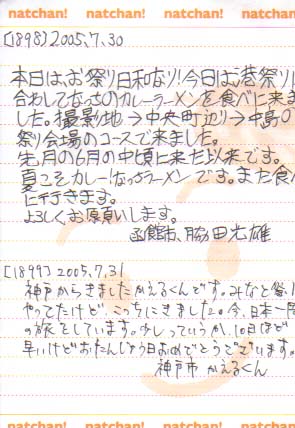 natchan! natchan! natchan! natchan!
[1898] 2005.7.30
本日は、お祭り日和なり!!今日は、港祭りに
合わしてなっちのカレーラーメンを食べに来ま
した。撮影地→中央町辺り→中島〇
祭り会場のコースで来ました。
先月の6月の中頃に来た以来です。
夏こそカレーなっちラーメンです。また食べ
に行きます。
よろしくお願いします。
函館市、脇田光雄
[1899] 2005.7.31
神戸からきましたかえるくんです。みなと祭り
やってたけど、こっちにきました。今、日本一周
の旅をしています。少しっていうか、10日ほど
早いけどおたんじょう日おめでとうございます。
神戸市 かえるくん
natchan! natchan! natchan! natchan!